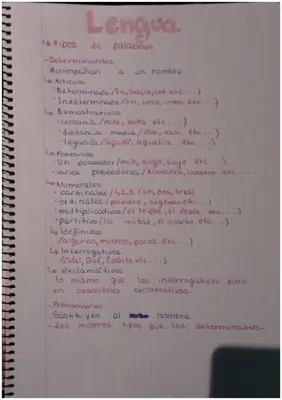 Lengua
↳ tipos de palabras
- Determinantes
Acompañan a un nombre
↳ Artículo
· Determinado /la, las, lo, los etc...)
· Indeterminado /un, una, unos etc...)
↳ Demostrativos
- cercanía /este, esta etc...)
· distancia media /ese, esa etc...)
- lejanía /aquel, aquella etc...)
↳ Posesivos
- Un poseedor /mío, suyo, tuyo etc...)
- varios poseedores /Nuestro, vuestro etc...
↳ Numerales
- cardinales /1,2,3 (un, dos, tres)
· ordinales /primero, segundo etc...)
- multiplicativos /el triple, el doble etc...)
- partitivo /la mitad, el cuarto etc...)
↳ Idefinidos
/algunas, muchos, pocos etc...)
↳ Interrogativos
/Cuál, Qué, Cuánto etc...)
↳ exclamativos
lo mismo que los interrogativos pero
en oraciones exclamativas
- Pronombres
Sustituyen al nombre
- Los mismos tipos que los determinantes-